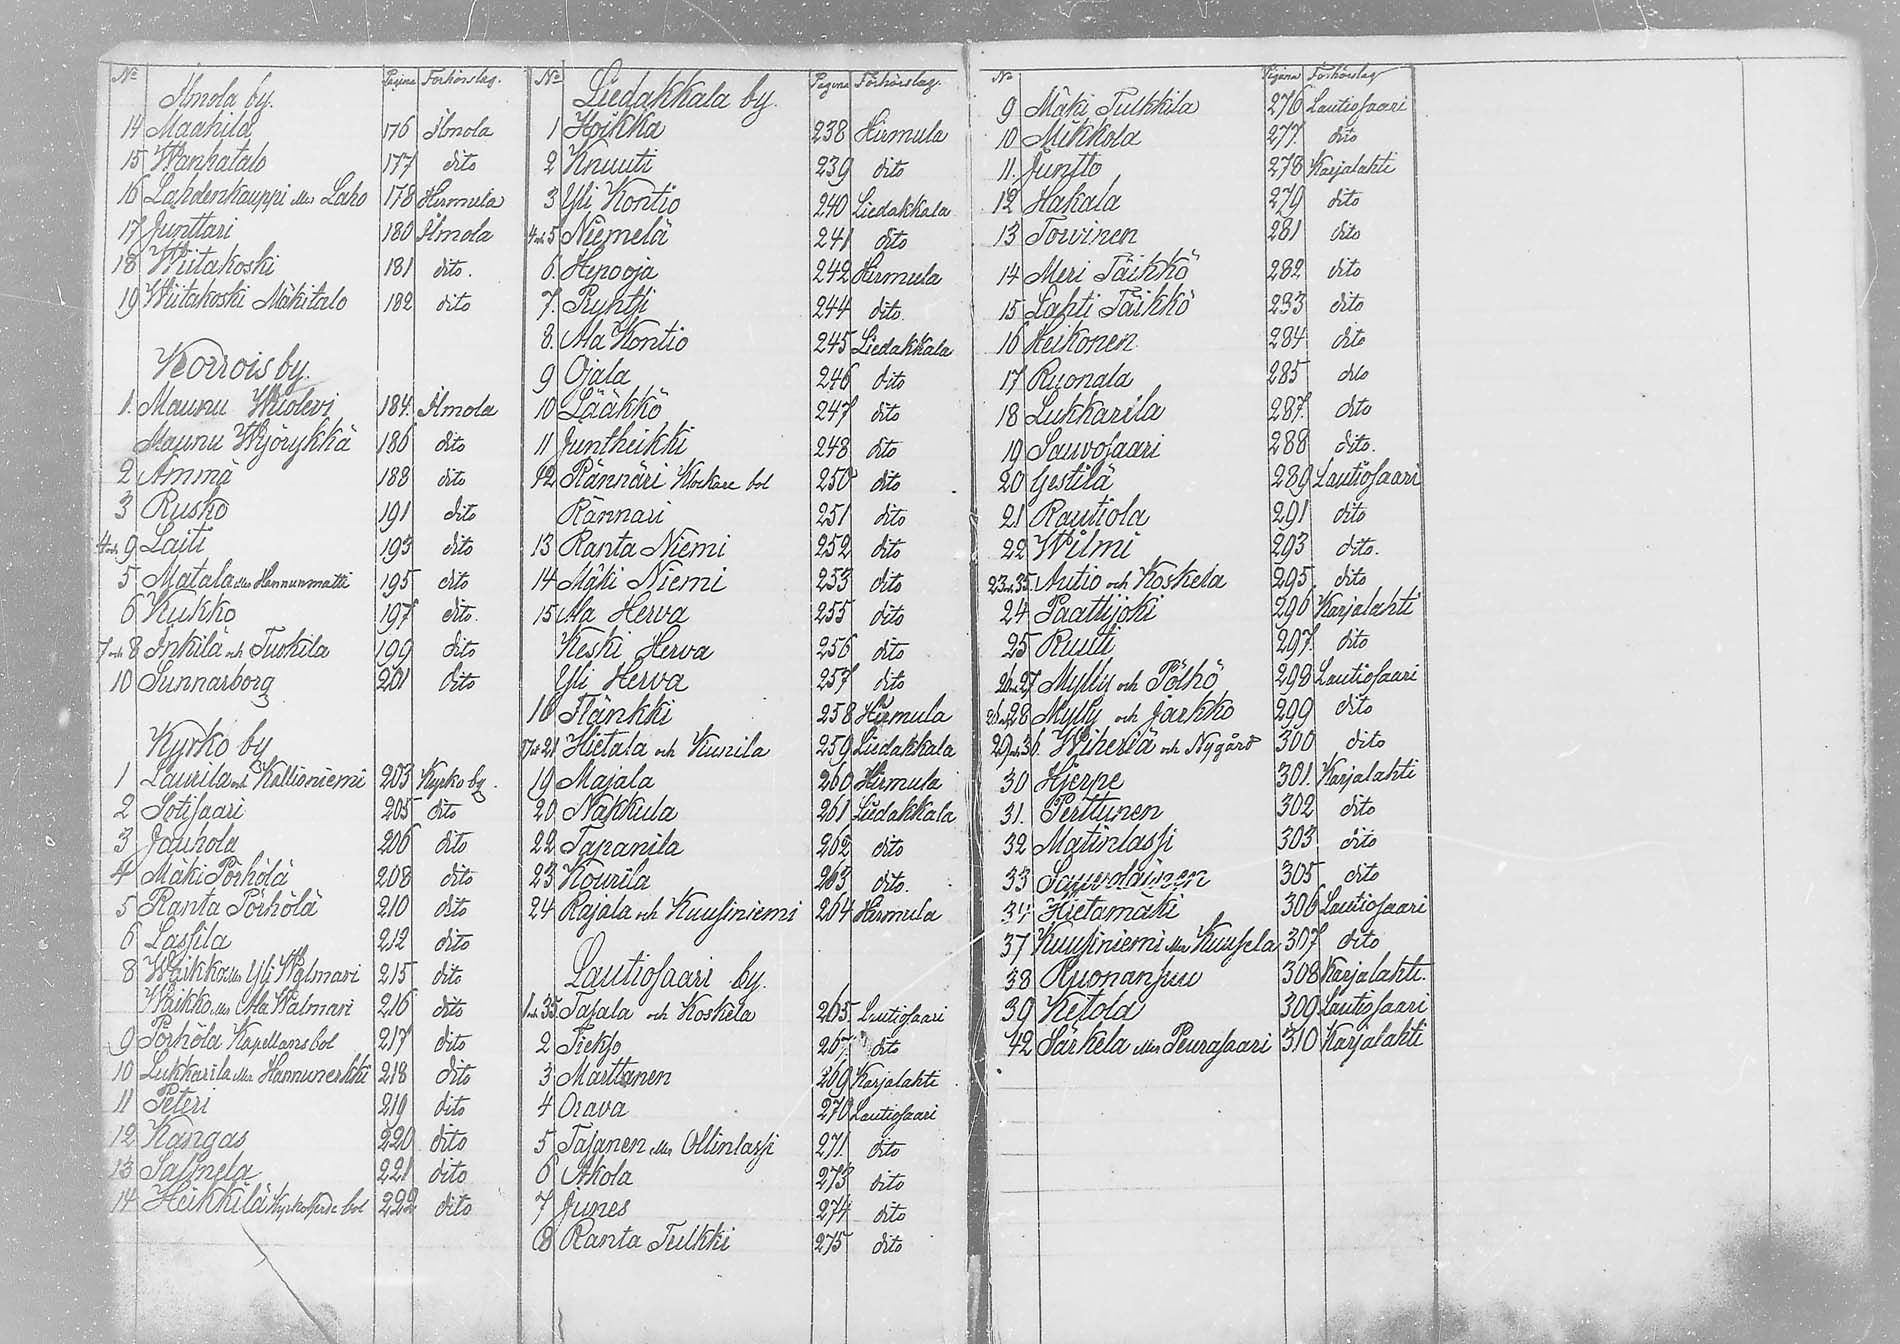 No Pagina Förhörslag.
Ilmola by.
14 Maahila 176 Ilmola
15 Wanhatalo 177 dito
16 Lahdenkauppi eller Laho 178 Hirmula
17 Junttari 180 Ilmola
18 Wiitakoski 181 dito.
19 Wiitakoski Mäkitalo 182 dito
Korrois by.
1. Maunu Wuolevi 184. Ilmola
Maunu Wyörykkä 186 dito
2 Ämmä 188 dito
3 Rusko 191 dito
4 och 9 Laiti 193 dito
5 Matala eller Hannunmatti 195 dito
6 Kukko 197 dito.
7 och 8 Inkilä och Turkila 199 dito
10 Sunnarborg 201 dito
Kyrko by
1 Laurila och Kallioniemi 203 Kyrko by.
2 Sotisaari 205 dito
3 Jauhola 206 dito
4 Mäki Pörhölä 208 dito
5 Ranta Pörhölä 210 dito
6 Lassila 212 dito
8 Waikko eller Yli Walmari 215 dito
Waikko eller Ala Walmari 216 dito
9 Pörhölä Kapellans bol 217 dito
10 Lukkarila eller Hannunerkki 218 dito
11 Peteri 219 dito
12 Kangas 220 dito
13 Salmela 221 dito
14 Heikkilä Kyrkoherde bol 222 dito
No Pagina Förhörslag.
Liedakkala by.
1 Hoikka 238 Hirmula
2 Knuuti 239 dito
3 Yli Kontio 240 Liedakkala
4 och 5 Niemelä 241 dito
6. Hepooja 242 Hirmula
7. Ryhtji 244 dito.
8. Ala Kontio 245 Liedakkala
9 Ojala 246 dito
10 Lääkkö 247 dito
11 Juntheikki 248 dito
12 Rännäri Klockare bol 250 dito
Rännari 251 dito
13 Ranta Niemi 252 dito
14 Mäki Niemi 253 dito
15 Ala Herva 255 dito
Keski Herva 256 dito
Yli Herva 257 dito
16 Flänkki 258 Hirmula
17 och 21 Hietala och Kunila 259 Liedakkala
19 Majala 260 Hirmula
20 Nakkula 261 Liedakkala
22 Tapanila 262 dito
23 Kourila 263 dito.
24 Rajala och Kuusiniemi 264 Hirmula
Lautiosaari by.
1 och 35 Tasala och Koskela 265 Lautiosaari
2 Tiekso 267 dito
3 Marttanen 269 Karjalahti
4 Orava 270 Lautiosaari
5 Tasanen eller Ollinlassi 271. dito
6 Akola 273 dito
7 Junes 274 dito
8 Ranta Tulkki 275 dito
No Pagina Förhörslag
9 Mäki Tulkkila 276 Lautiosaari
10 Mikkola 277. dito
11. Juntto 278 Karjalahti
12 Hakala 279 dito
13 Torvinen 281 dito
14 Meri Täikkö 282 dito
15 Lahti Täikkö 283 dito
16 Heikonen 284 dito
17 Ruonala 285 dito
18 Lukkarila 287. dito
19 Sauvosaari 288 dito.
20 Gestilä 289 Lautiosaari
21 Rautiola 291 dito
22 Wilmi 293 dito.
23 och 35. Autio och Koskela 295 dito
24 Paattijoki 296 Karjalahti
25 Ruuti 297. dito
26 och 27 Mylly och Pölhö 298 Lautiosaari
26 och 28 Mylly och Jarkko 299 dito
29 och 36. Wiheriä och Nygård 300 dito
30 Hjerpe 301. Karjalahti
31. Perttunen 302 dito
32 Matinlassi 303 dito
33 Sauvolainen 305 dito
34 Hietamäki 306 Lautiosaari
37 Kuusiniemi eller Kuusela 307 dito
38 Ruonansuu 308 Karjalahti.
39 Ketola 309 Lautiosaari
42 Särkelä eller Peurasaari 310 Karjalahti